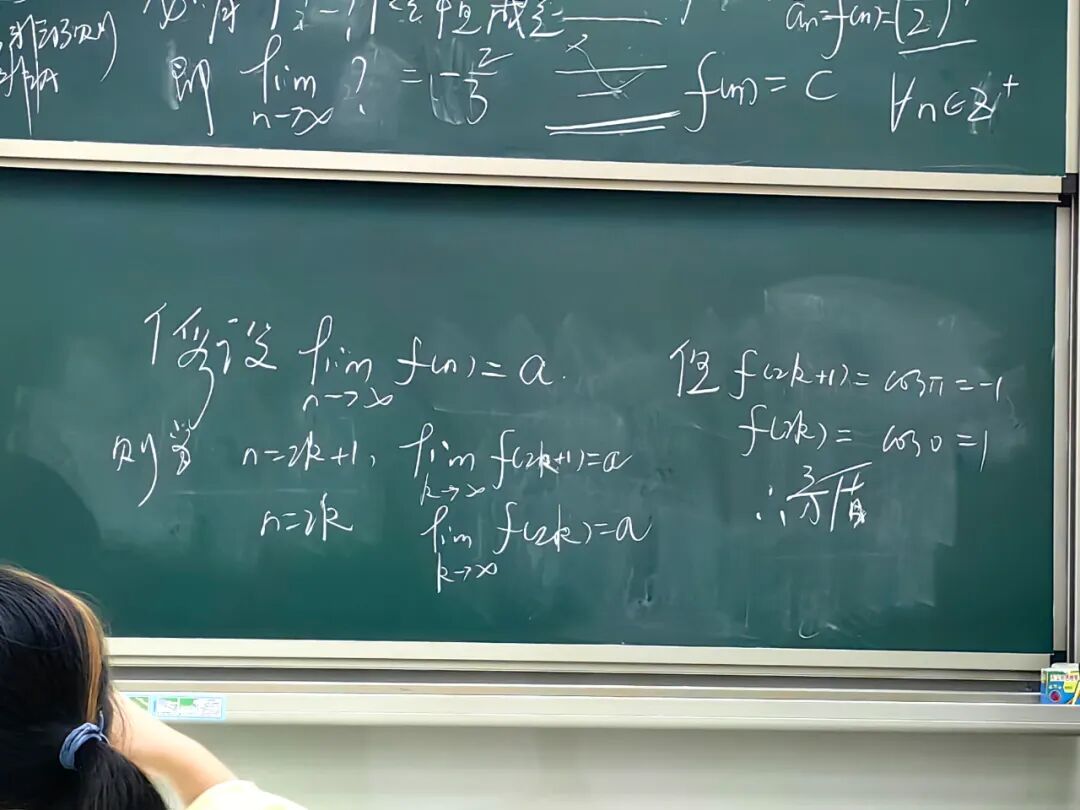 恒成立
a_n=f(n)=(2)
即 lim n→∞ ? = 1-2/3
f(n)=C ∀n∈Z⁺
假设 lim n→∞ f(n)=a.
则当 n=2k+1, lim k→∞ f(2k+1)=a
n=2k lim k→∞ f(2k)=a
但 f(2k+1)=cosπ=-1
f(2k)=cos0=1
∴矛盾